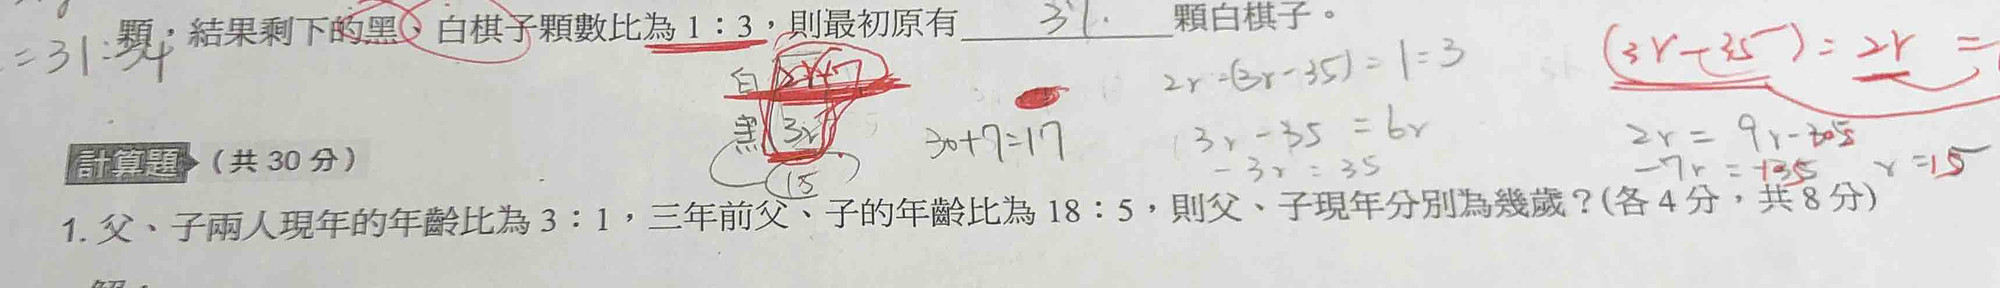 顆，結果剩下的黑、白棋子顆數比為 1：3，則最初原有 37. 顆白棋子。
=31:34
白 2r+7
黑 3r
15
30+7=17
2r-(3r-35)=1=3
3r-35 = 6r
-3r = 35
(3r-35)=2r =
2r = 9r-105
-7r = -135 r=15
計算題（共 30 分）
1. 父、子兩人現年的年齡比為 3：1，三年前父、子的年齡比為 18：5，則父、子現年分別為幾歲？(各 4 分，共 8 分)